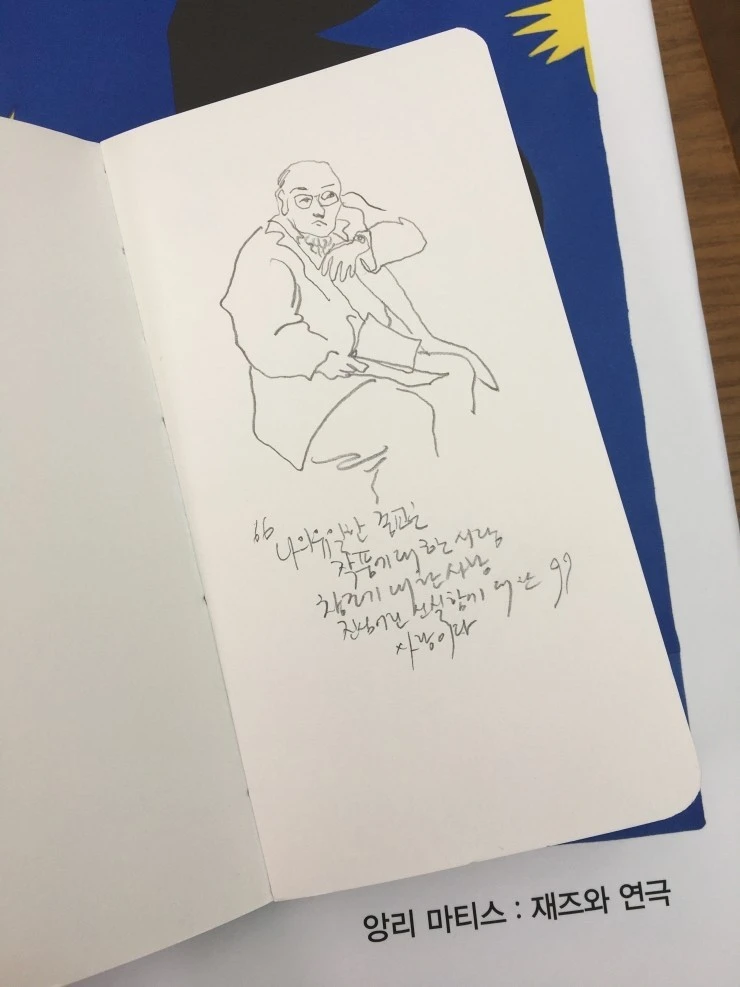 “나의 유일한 종교는
작품에 대한 사랑
창조에 대한 사랑
진심어린 신실함에 대한 ”
사랑이다
앙리 마티스 : 재즈와 연극